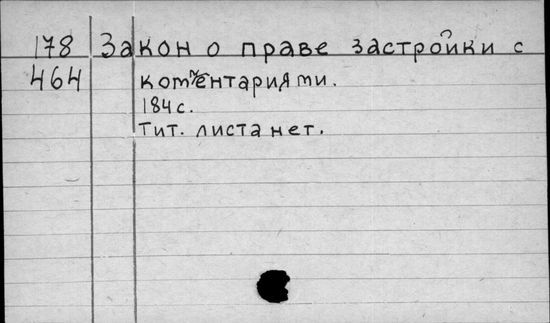 178 Закон о праве застройки с
464 комментариями.
184 с.
Тит. листа нет.